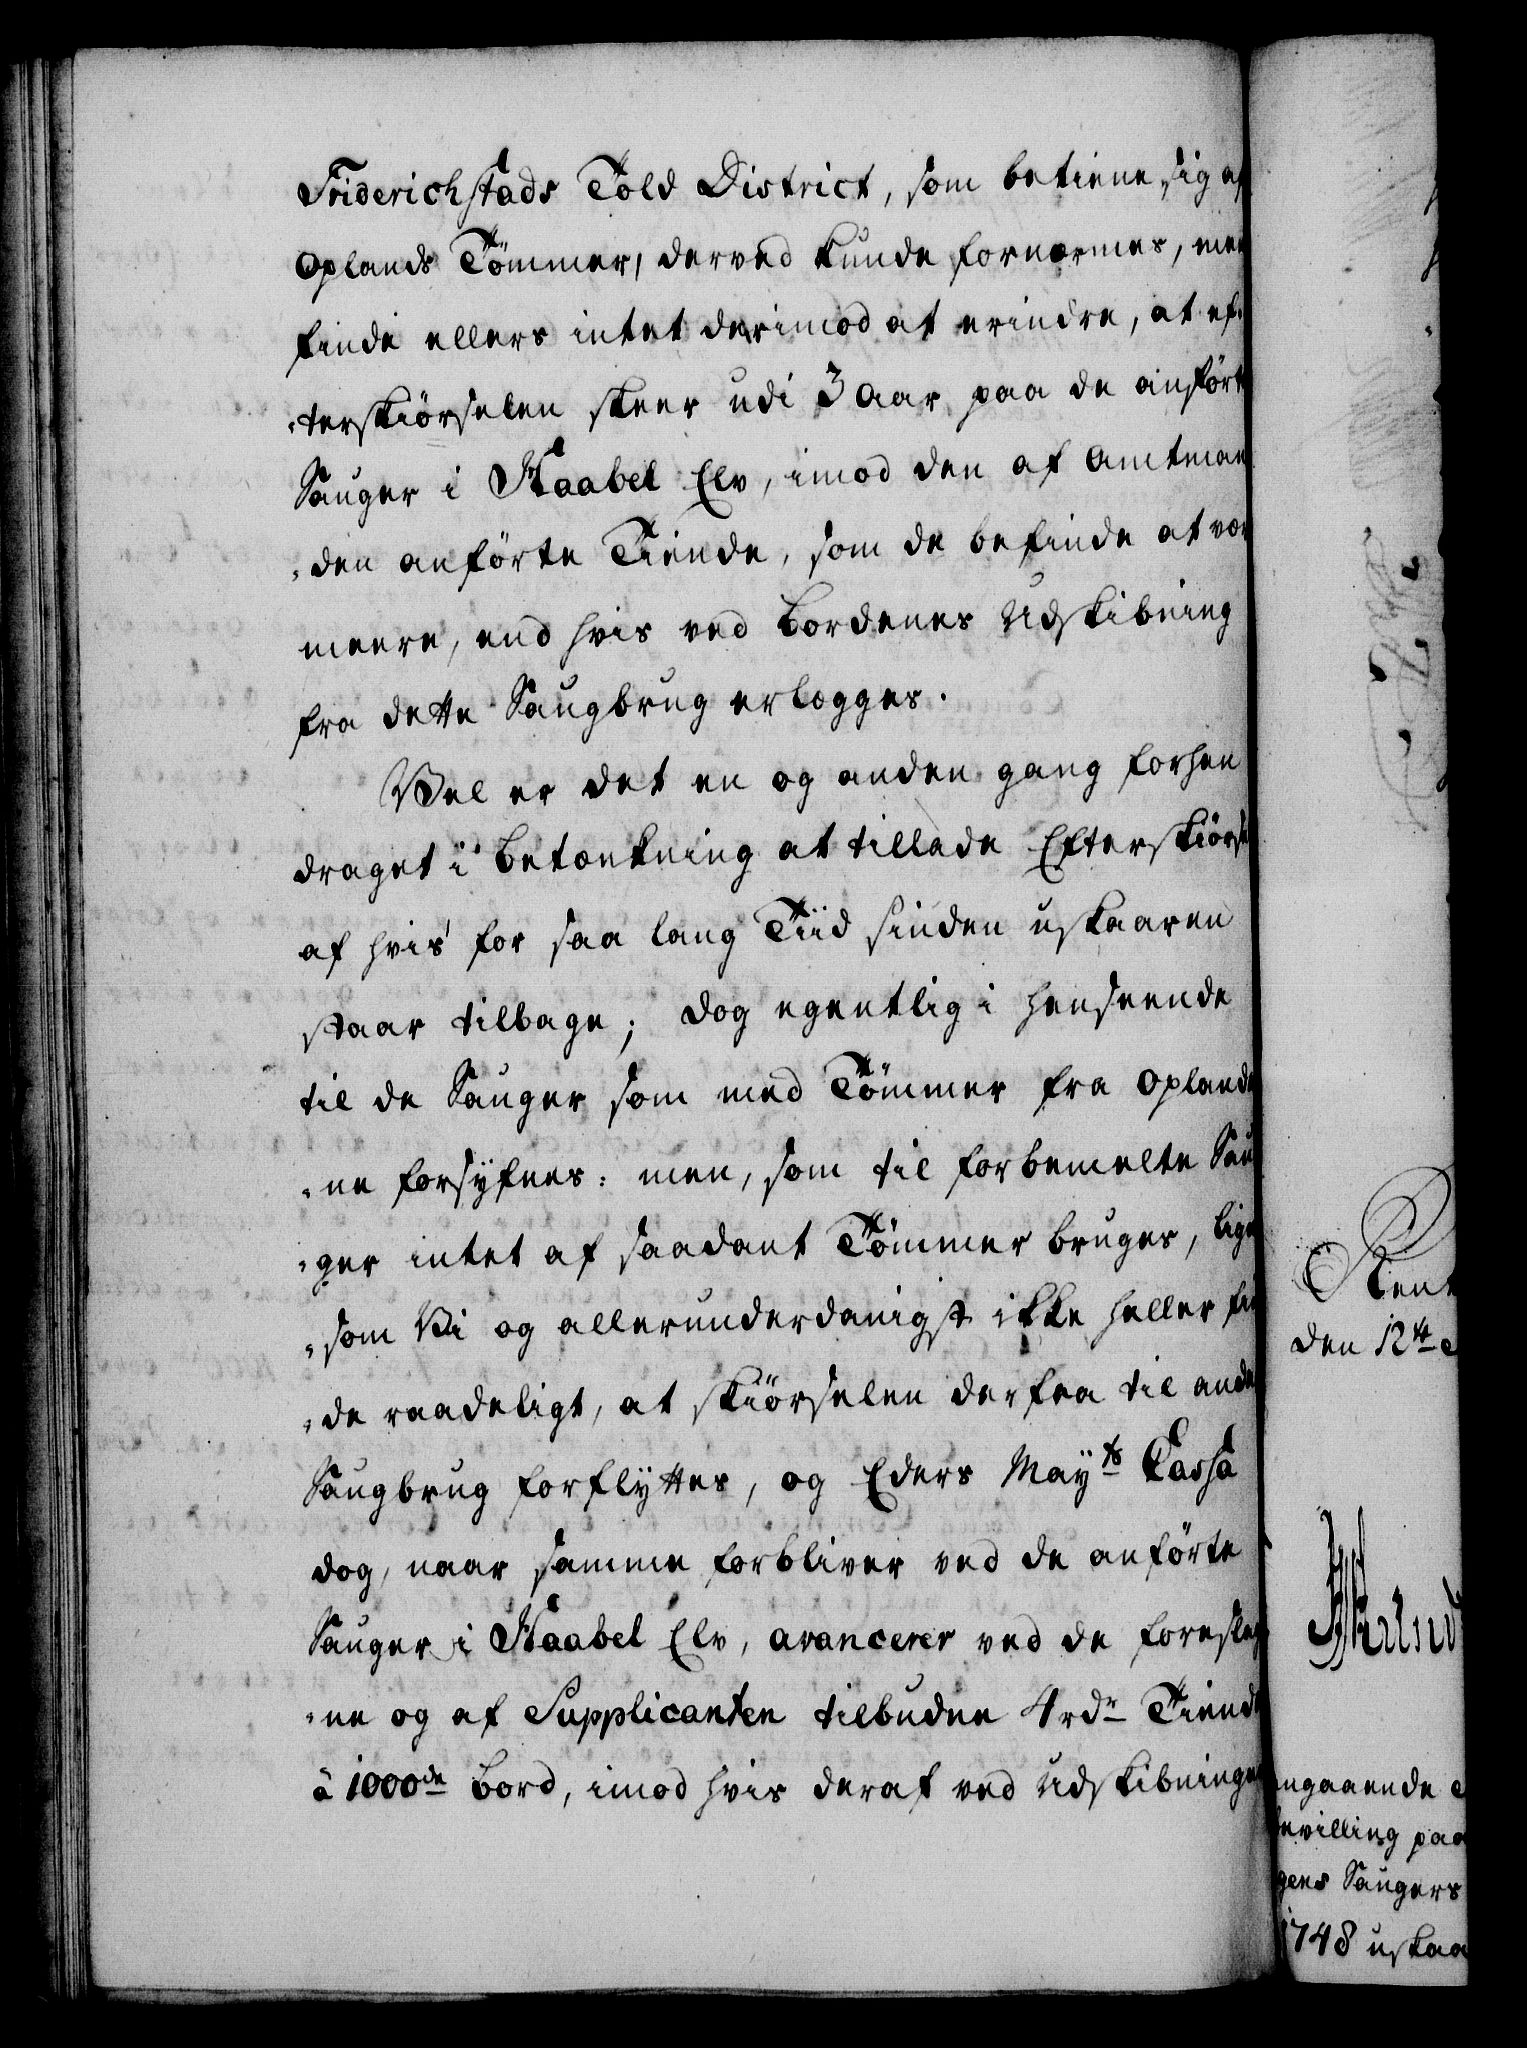 Friderichstads Told District, som betiene sig af
Oplands Tømmer, derved kunde fornærmes, men
finde ellers intet derimod at erindre, at ef-
terskiørselen skeer udi 3 Aar paa de anførte
Sauger i Haabel Elv, imod den af Amtman-
den anførte Tiende, som de befinde at være
meere, end hvis ved Bordenes Udskibning
fra dette Saugbrug erlægges.
Vel er det en og anden gang forhen
draget i betænkning at tillade Efterskiørsel
af hvis for saa lang Tiid sinden uskaaren
staar tilbage; dog egentlig i henseende
til de Sauger som med Tømmer fra Oplande-
ne forsÿfnes: men, som til forbemelte Sau-
ger intet af saadant Tømmer bruges, lige-
som Vi og allerunderdanigst ikke heller fin-
de raadeligt, at skiørselen derfra til andre
Saugbrug forflyttes, og Eders Maÿts Cassa
dog, naar samme forbliver ved de anførte
Sauger i Haabel Elv, avancerer ved de foreslag-
ne og af Supplicanten tilbudne 4 rdr Tiende
à 1000de Bord, imod hvis deraf ved Udskibningen
Rent
den 12te
ngaaende
bevilling paa
gens Saugers
1748 uskaa